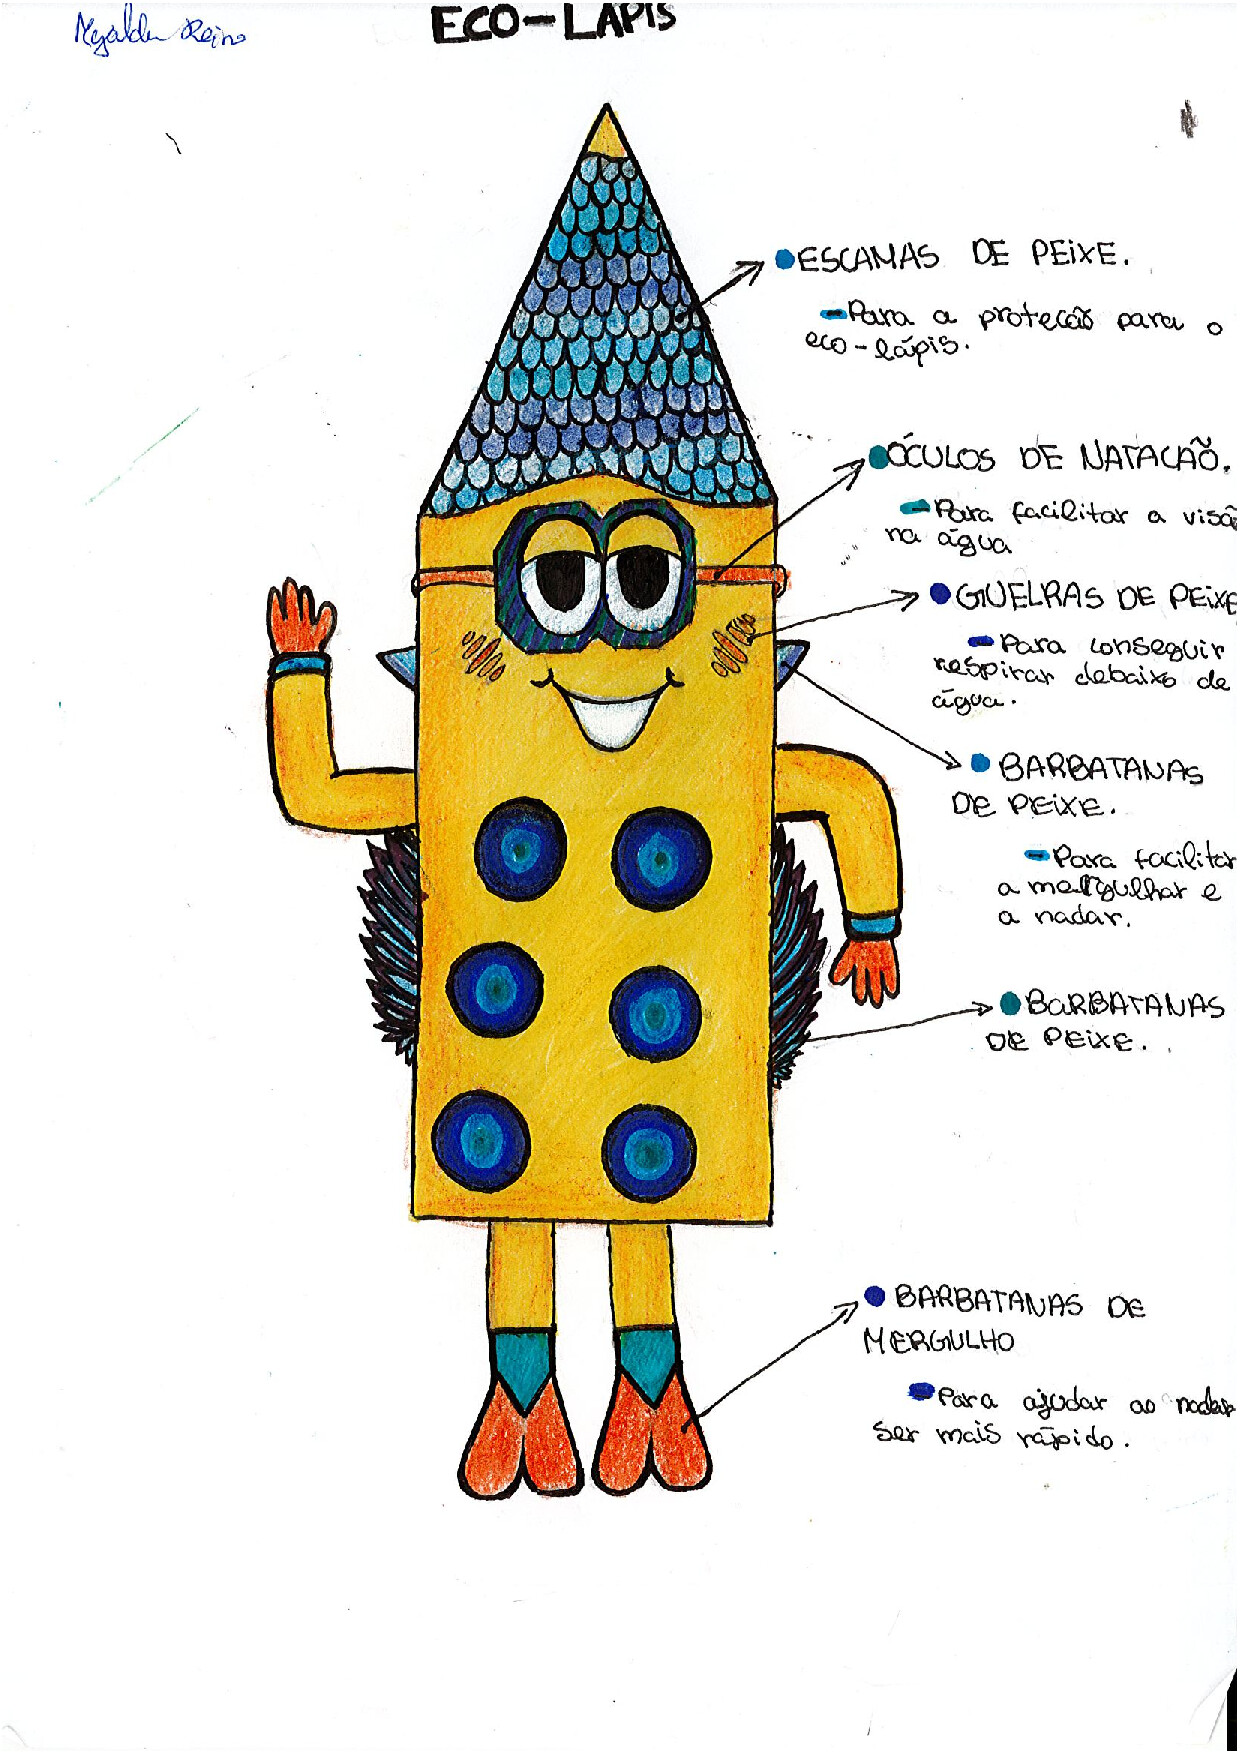 Reino
ECO-LÁPIS
ESCAMAS DE PEIXE.
-Para a proteção para o
eco-lápis.
ÓCULOS DE NATAÇÃO.
-Para facilitar a visã
na água
GUELRAS DE PEIXE
-Para conseguir
respirar debaixo de
água.
BARBATANAS
DE PEIXE.
-Para facilitar
a mergulhar e
a nadar.
BARBATANAS
DE PEIXE.
BARBATANAS DE
MERGULHO
-Para ajudar ao nadar
ser mais rápido.